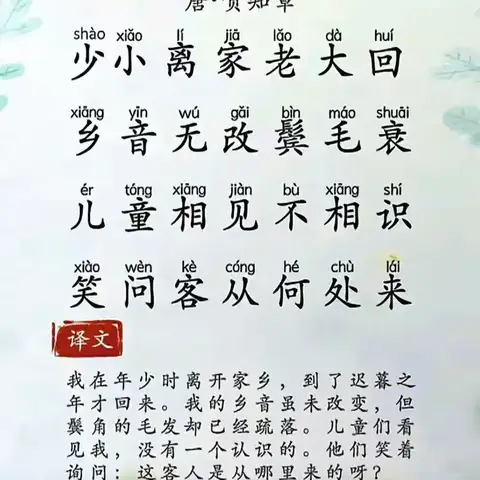 唐·贺知章
shào xiǎo lí jiā lǎo dà huí
少小离家老大回
xiāng yīn wú gǎi bìn máo shuāi
乡音无改鬓毛衰
ér tóng xiāng jiàn bù xiāng shí
儿童相见不相识
xiào wèn kè cóng hé chù lái
笑问客从何处来
译文
我在年少时离开家乡，到了迟暮之
年才回来。我的乡音虽未改变，但
鬓角的毛发却已经疏落。儿童们看
见我，没有一个认识的。他们笑着
询问：这客人是从哪里来的呀？